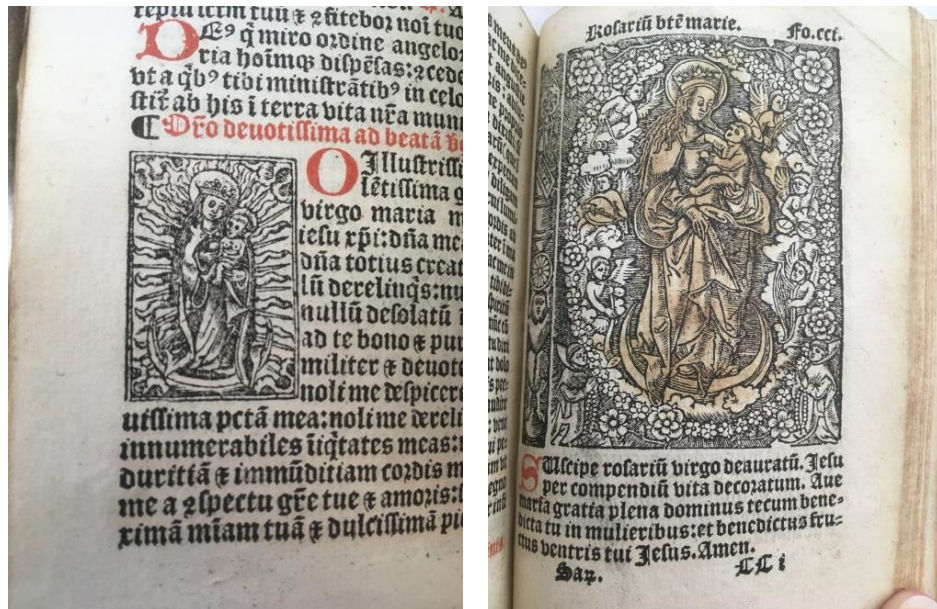 tuū ⁊ ꝯfitebor noī tuo
DEꝰ q̄ miro ordine angelor
ria hoīmqꝫ dispēſas:ꝯcede
vt a q̄bꝰ tibi miniſtrātibꝰ in celo
ſtīt ab his ī terra vita nr̄a mun
¶ Or̄o deuotiſſima ad beatā
O Illuſtriſſi
lētiſſima g
virgo maria m
ieſu xp̄i:dn̄a mea
dn̄a totius creat
lū derelinq̄s:nu
nullū deſolatū
ad te bono ⁊ pur
militer ⁊ deuote
noli me deſpicere
utiſſima pctā mea:noli me dereli
innumerabiles īiq̄tates meas:
duritiā ⁊ immūditiam cordis m
me a ꝯſpectu gr̄e tue ⁊ amoris:
ximā mīam tuā ⁊ dulciſſimā pie
Roſariū btē marie. Fo.cci.
SUſcipe roſariū virgo deauratū. Jeſu
per compendiū vita decoratum. Aue
maria gratia plena dominus tecum bene⸗
dicta tu in mulieribus:et benedictus fru⸗
ctus ventris tui Jeſus. Amen.
Sax. CC i